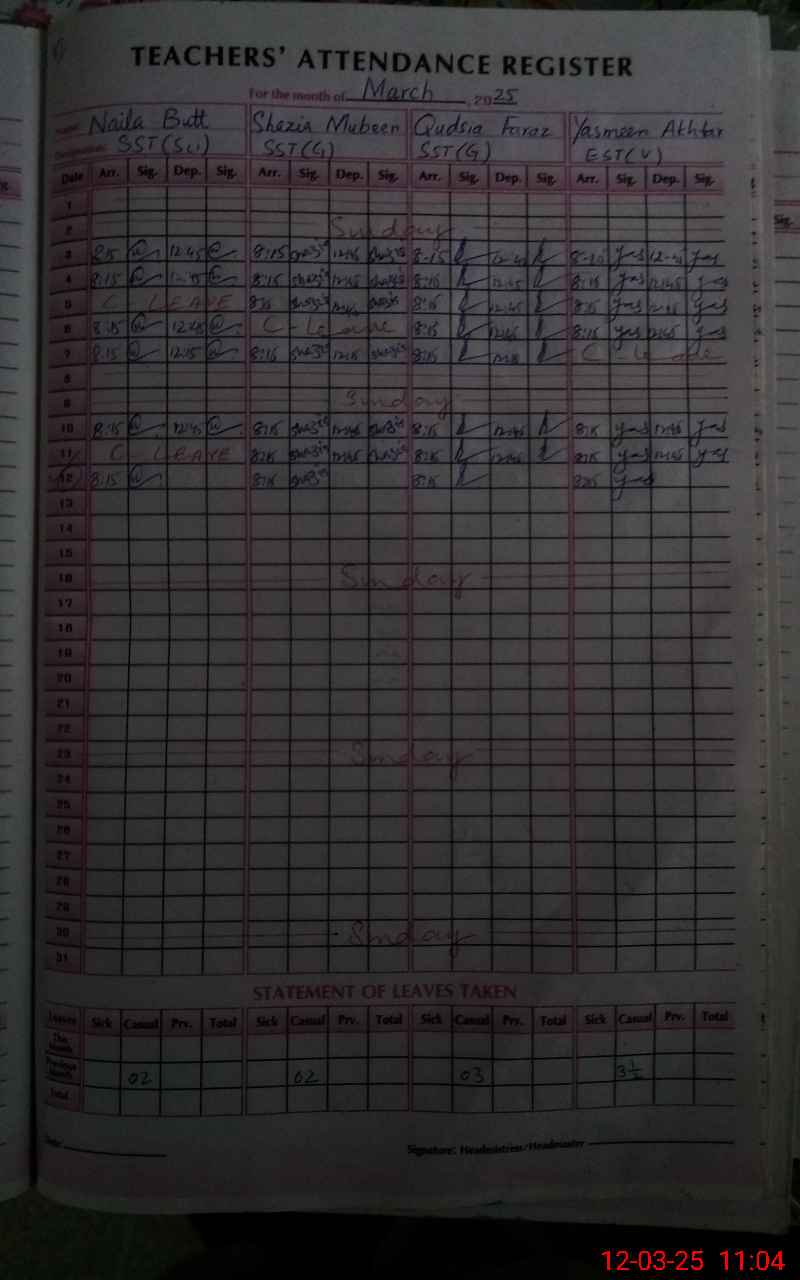 TEACHERS' ATTENDANCE REGISTER
For the month of March, 2025
Naila Butt Shazia Mubeen Qudsia Faraz Yasmeen Akhtar
SST(Sci) SST(G) SST(G) EST(V)
Date Arr. Sig. Dep. Sig. Arr. Sig. Dep. Sig. Arr. Sig. Dep. Sig. Arr. Sig. Dep. Sig.
1
2 Sunday
3 8:15 12:45 8:15 12:45 8-15 yas yas
4 8:15 12:45 8:15 12:45 8:15 12:45 8:15 yas 12:45 yas
5 C LEAVE 8:15 8:15 12:45 8:15 yas 12:45 yas
6 8:15 12:45 C-Leave 8:15 12:45 8:15 yas 12:45 yas
7 8:15 12:15 8:15 12:15 8:15 C-Leave
8
9 Sunday
10 8:15 12:45 8:15 12:45 8:15 12:45 8:15 yas 12:45 yas
11 C-LEAVE 8:15 12:45 8:15 12:45 8:15 yas 12:45 yas
12 8:15 8:15 8:15 8:15 yas
13
14
15
16 Sunday
17
18
19
20
21
22
23 Sunday
24
25
26
27
28
29
30 Sunday
31
STATEMENT OF LEAVES TAKEN
Leaves Sick Casual Prv. Total Sick Casual Prv. Total Sick Casual Prv. Total Sick Casual Prv. Total
This Month
Previous Month 02 02 03 3½
Total
Date Signature: Headmistress/Headmaster
12-03-25 11:04